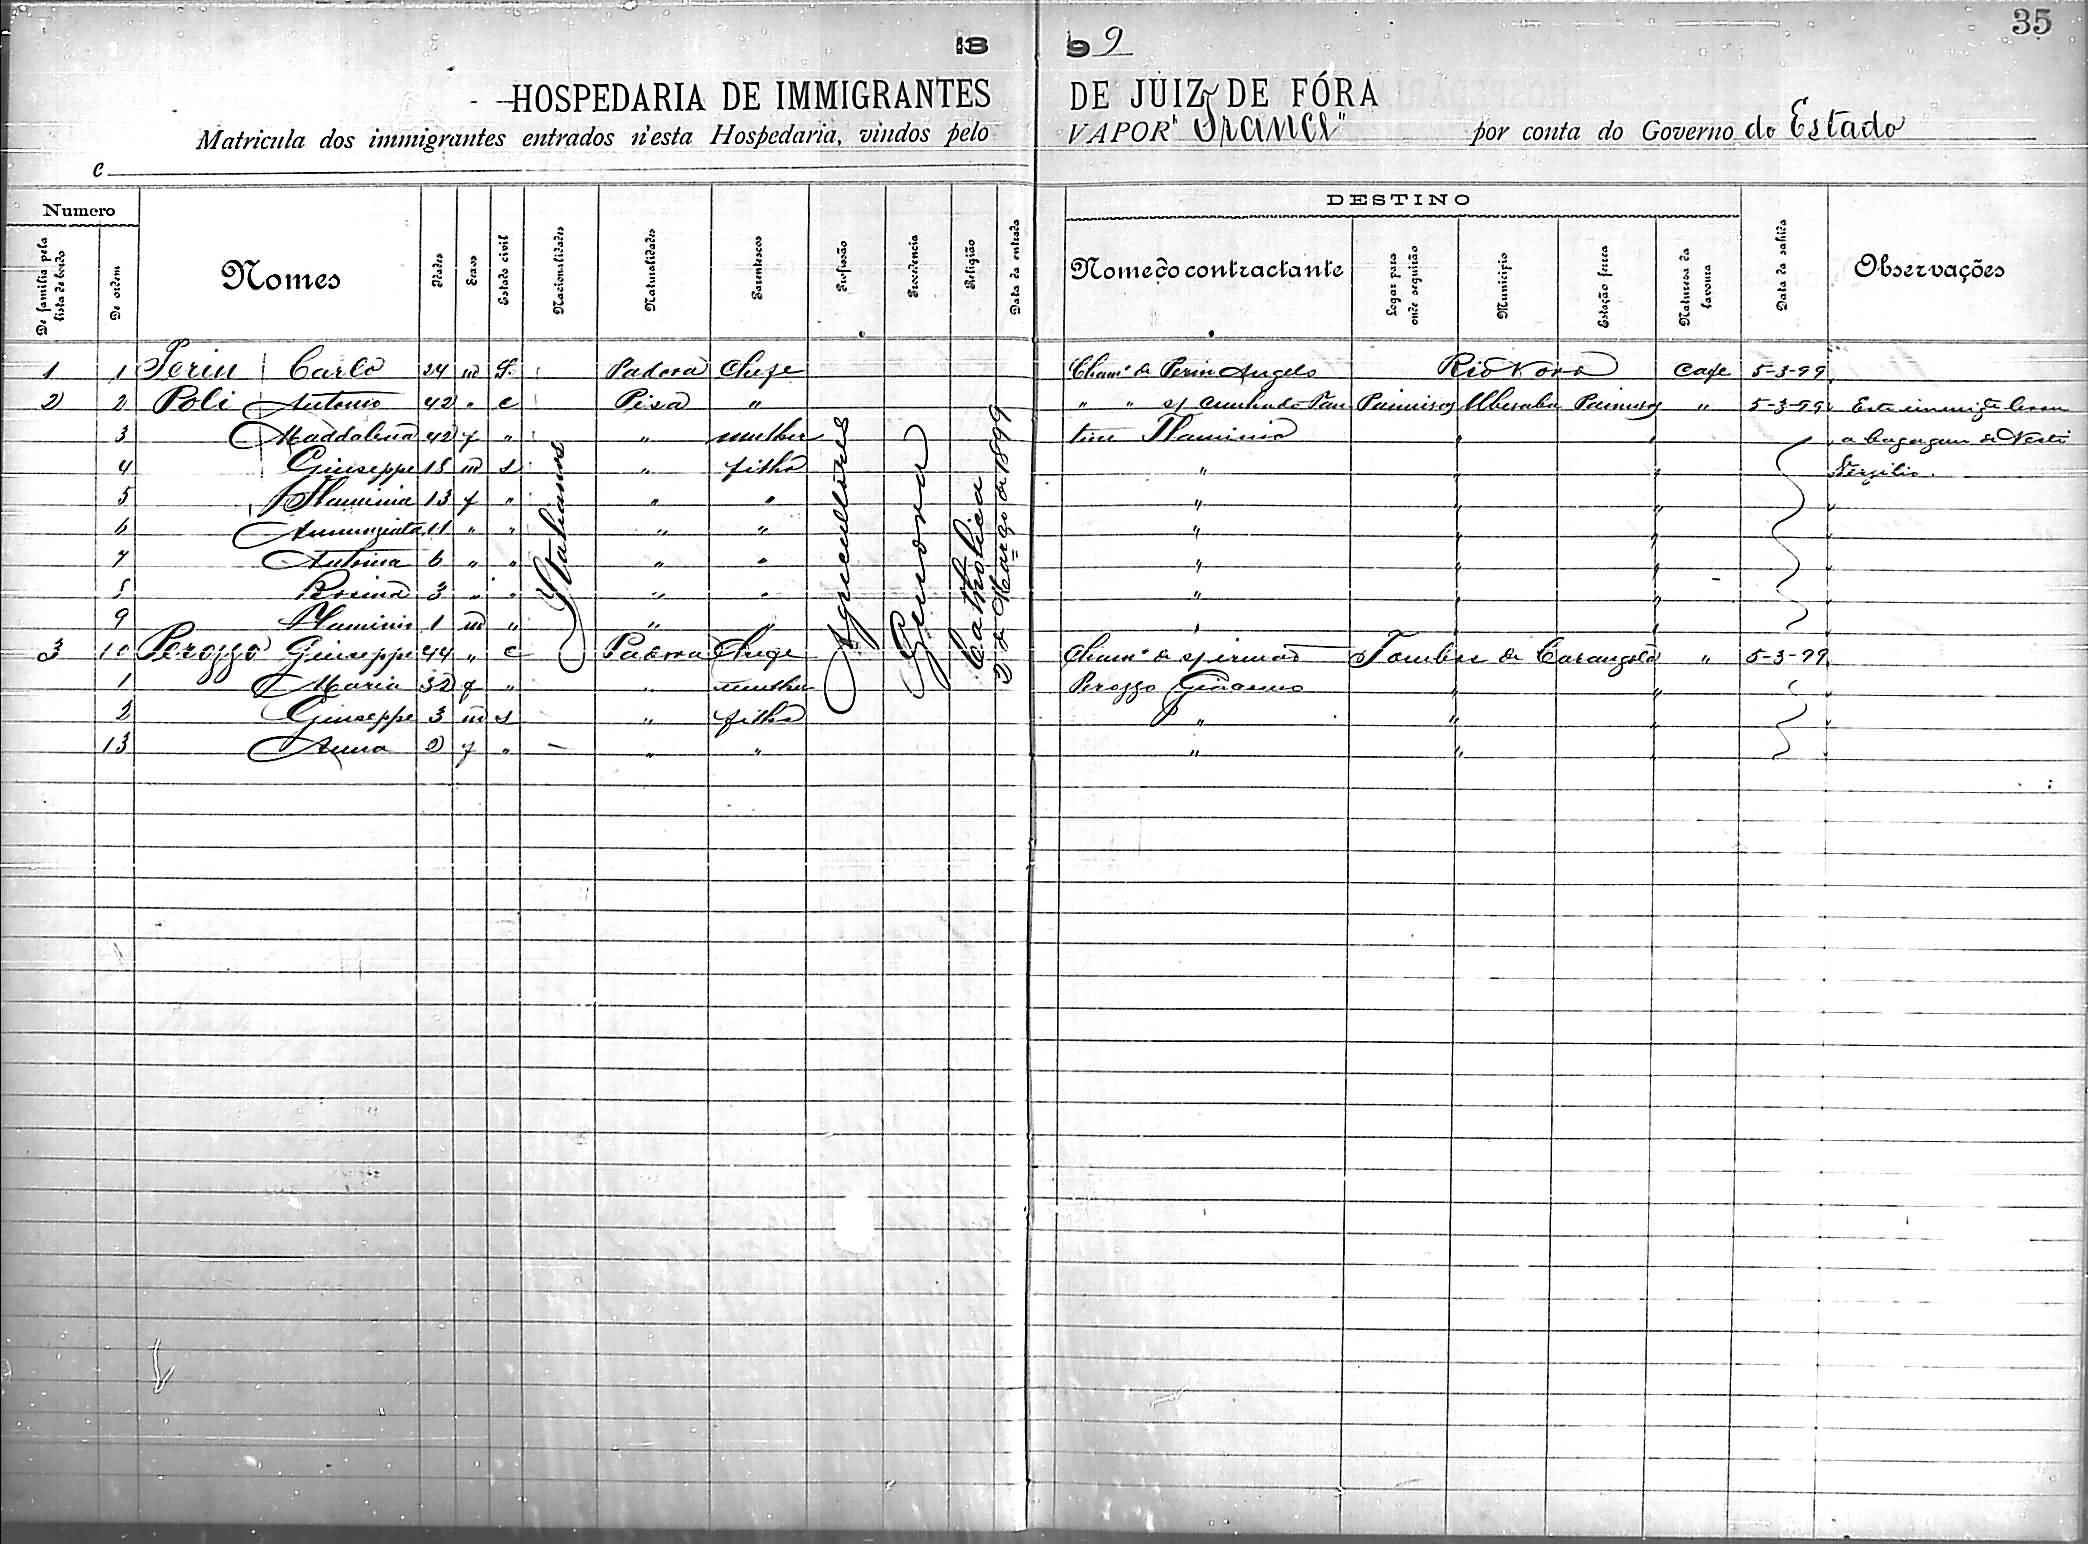 35
18 99
HOSPEDARIA DE IMMIGRANTES DE JUIZ DE FÓRA
Matricula dos immigrantes entrados n'esta Hospedaria, vindos pelo VAPOR "Franca" por conta do Governo do Estado
e
Numero DESTINO
De familia pela lista de bordo De ordem Nomes Idades Sexos Estado civil Nacionalidades Naturalidades Parentescos Profissão Procedencia Religião Data da entrada Nome do contractante Logar para onde seguirão Municipio Estação ferrea Natureza da lavoura Data da sahida Observações
1 1 Perin Carlo 24 m S. Padova Chefe Cham° de Perin Angelo Rio Novo Cafe 5-3-99
2 2 Poli Antonio 42 " c Pisa " " " s/ cunhado Uberaba " 5-3-99 Este
3 Maddalena 42 f " " mulher Flaminio " " a bagagem de
4 Giuseppe 15 m s " filho " " "
5 Flaminia 13 f " " " " " "
6 Annunziata 11 " " " " " " "
7 Antonia 6 " " " " " " "
8 Rosina 3 " " " " " " "
9 Flaminio 1 m " " " " " "
Italianos Agricultores Genova Catholica 2 de Março de 1899
3 10 Perozzo Giuseppe 44 " c Padova Chefe Cham° de s/ irmão Tombos de Carangola " 5-3-99
1 Maria 32 f " " mulher Perozzo Giacomo " "
2 Giuseppe 3 m s " filho " " "
13 Anna 2 f " " " " " "